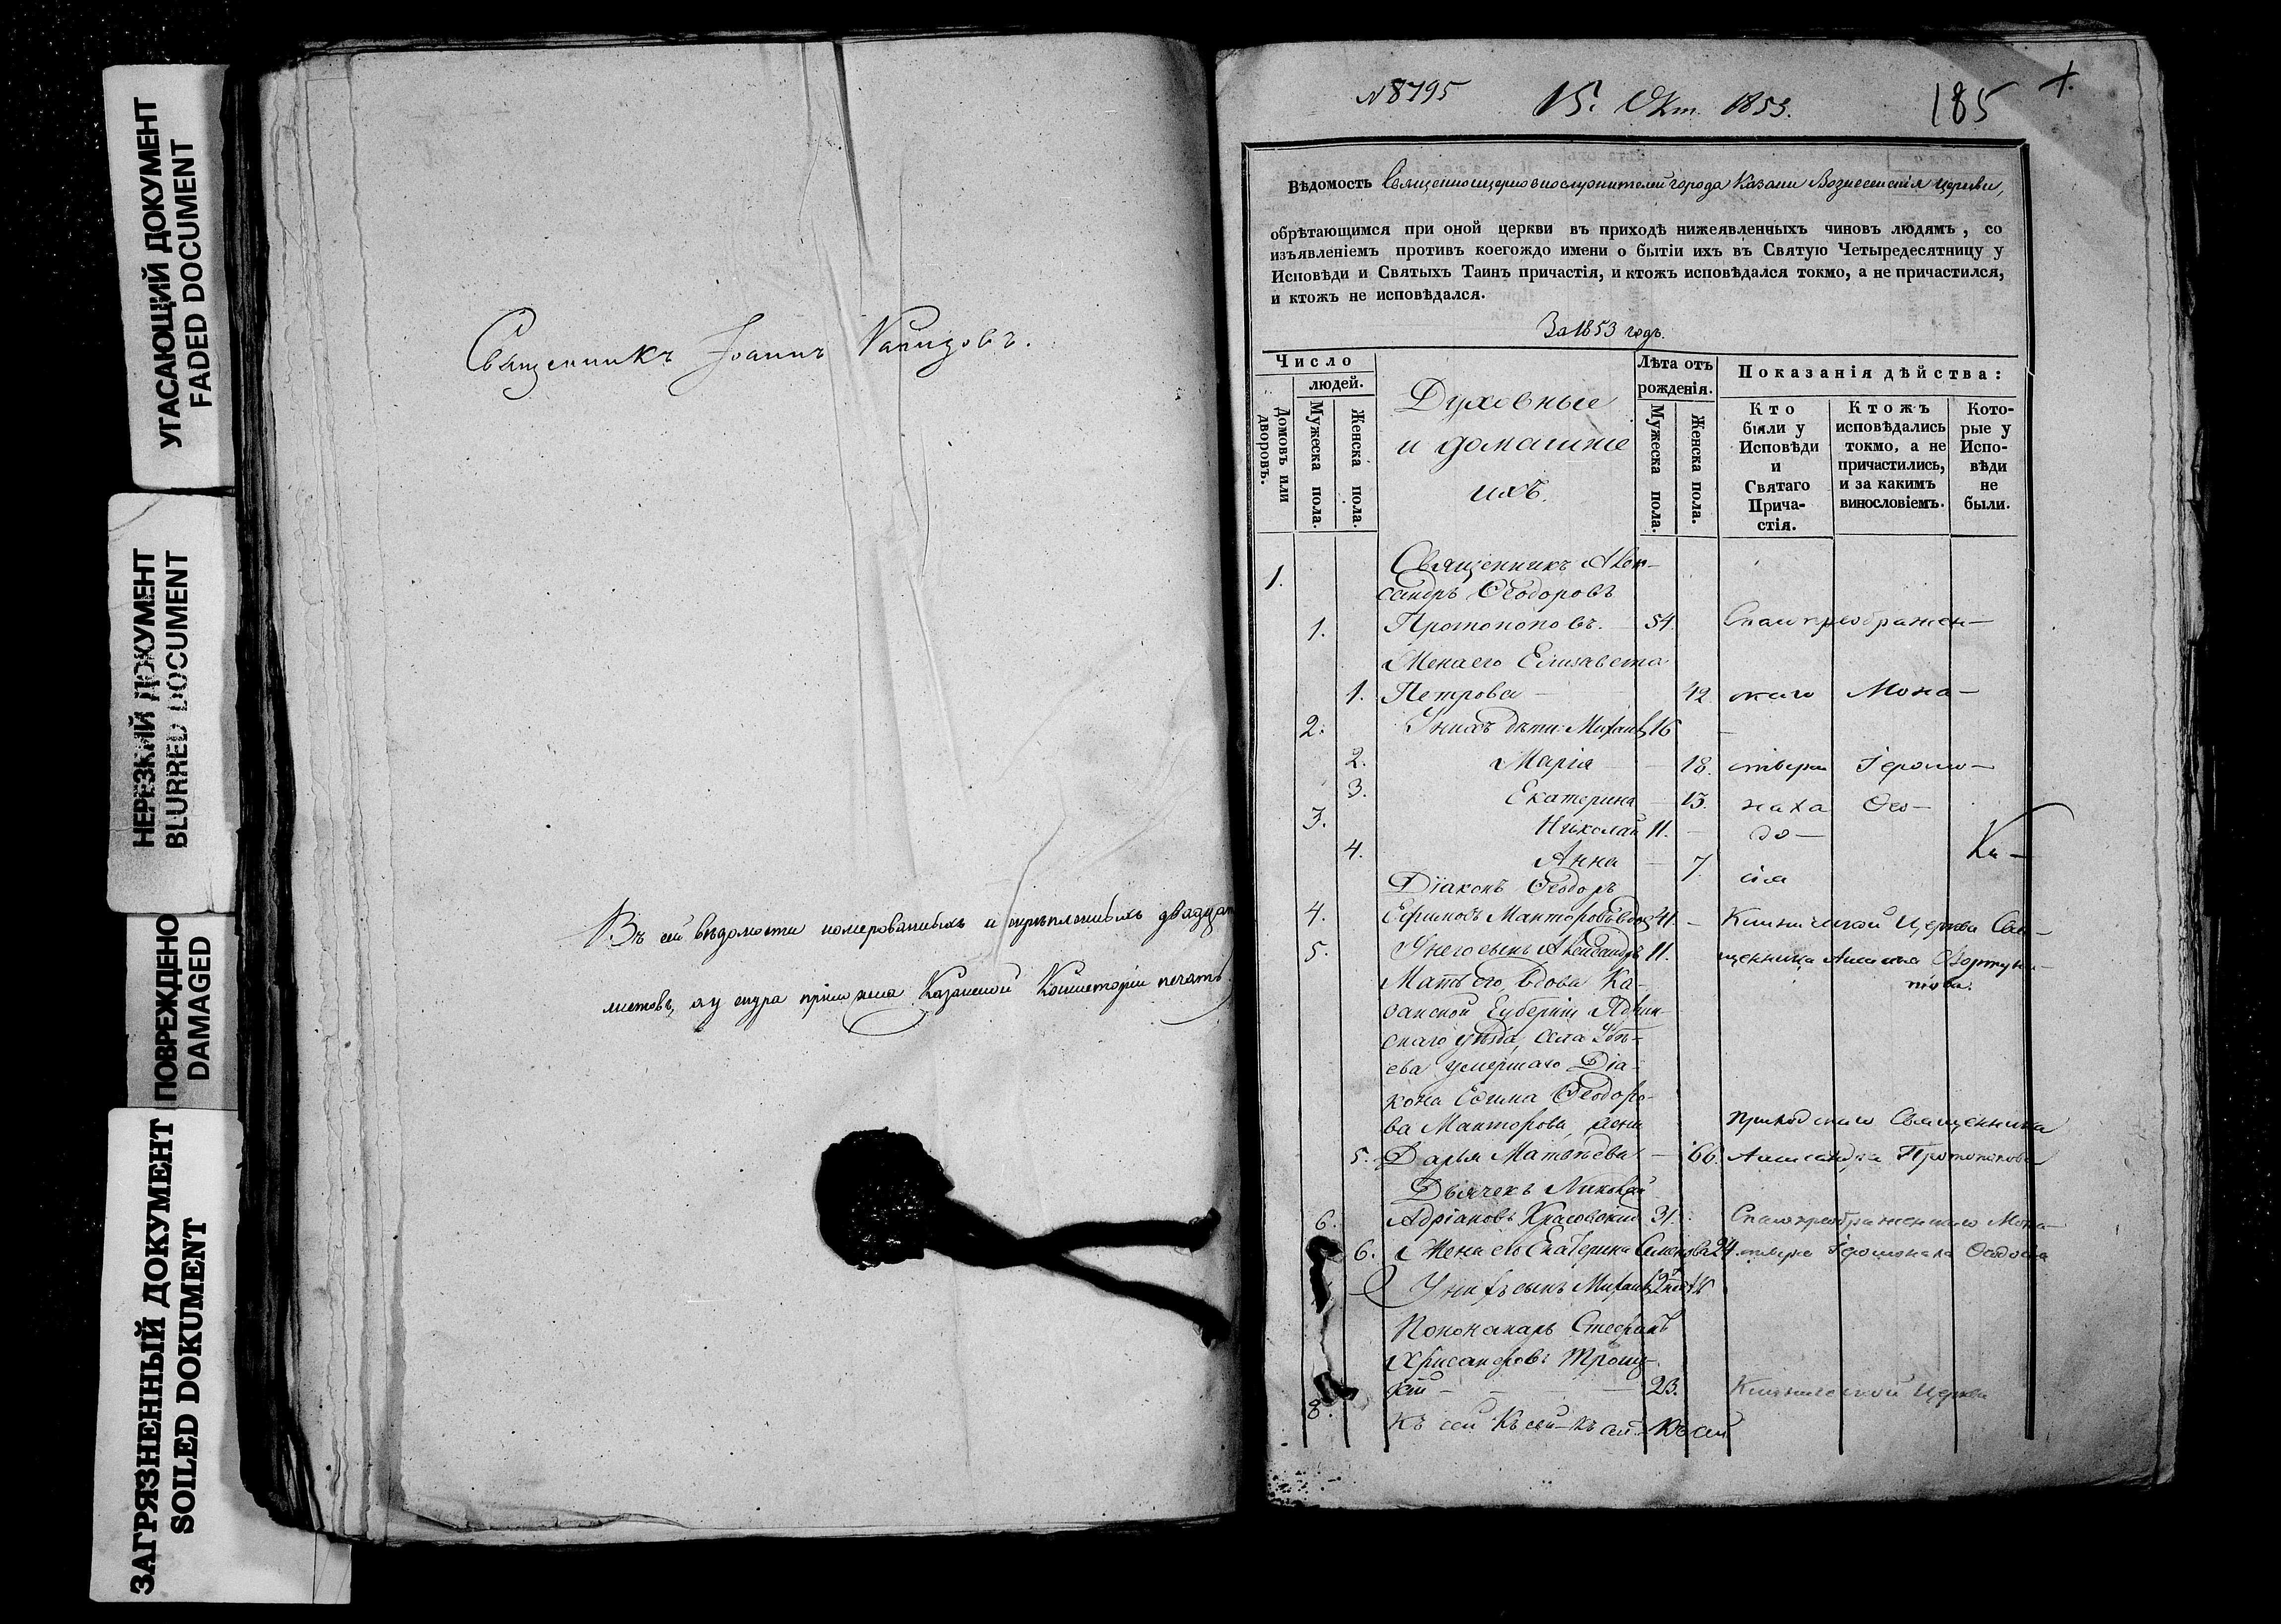 УГАСАЮЩИЙ ДОКУМЕНТ
FADED DOCUMENT
НЕРЕЗКИЙ ДОКУМЕНТ
BLURRED DOCUMENT
ПОВРЕЖДЕНО
DAMAGED
ЗАГРЯЗНЕННЫЙ ДОКУМЕНТ
SOILED DOKUMENT
Священникъ Іоаннъ
Въ сей вѣдомости номерованныхъ и скрѣпленныхъ двадцать
листовъ, а у снура приложена Казанской Консисторіи печать.
N 8795
15. Окт. 1853.
185
Вѣдомость Священноцерковнослужителей города Казани Вознесенскія церкви,
обрѣтающимся при оной церкви въ приходѣ нижеявленныхъ чиновъ людямъ, со
изъявленіемъ противъ коегождо имени о бытіи ихъ въ Святую Четыредесятницу у
Исповѣди и Святыхъ Таинъ причастія, и ктожъ исповѣдался токмо, а не причастился,
и ктожъ не исповѣдался.
За 1853 годъ.
Число
людей.
Домовъ или дворовъ.
Мужеска пола.
Женска пола.
Духовные
и домашніе
ихъ.
Лѣта отъ
рожденія.
Мужеска пола.
Женска пола.
Показанія дѣйства:
Кто
были у
Исповѣди
и
Святаго
Прича-
стія.
Ктожъ
исповѣдались
токмо, а не
причастились,
и за какимъ
винословіемъ.
Кото-
рые у
Испо-
вѣди
не
были.
1. Священникъ Алек-
сандръ Ѳеодоровъ
1. Протопоповъ. 54. Спасопреображен-
Жена его Елизавета
1. Петрова 42. скаго Мона-
2. У нихъ дѣти: Михаилъ 16
2. Марія 18. стыря Іеромо-
3. Екатерина 13. наха Ѳео-
3. Николай 11. до-
4. Анна 7. сія
Діаконъ Ѳеодоръ
4. Ефимовъ Манторовъ вдов 41. Кизической Церкви Свя-
5. У него сынъ Александръ 11. щенника
Мать его, вдова Ка-
занской Губерніи Ядрин-
скаго уѣзда, села
умершаго Діа-
кона Ефима Ѳеодоро-
ва Манторова, жена Приходскаго Священника
5. Дарья Матвѣева 66. Александра Протопопова
Дьячекъ Николай
6. Адріановъ Красовскій 31. Спасопреображенскаго Мона-
6. Жена его Екатерина Семенова 24. стыря Іеромонаха Ѳеодосія
У нихъ сынъ Михаилъ 2
Пономарь Стефанъ
Хрисанфовъ Троиц-
8. кій 23. Кизической Церкви
Къ сей Къ сей Къ сей Къ сей